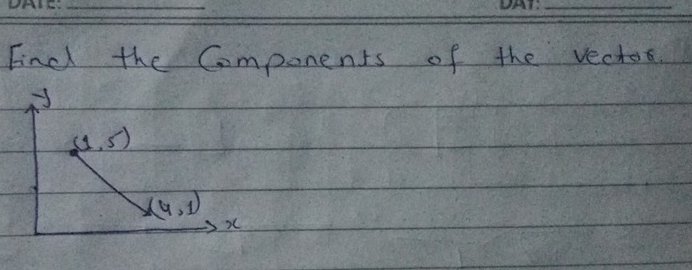 DATE: DAY:
Find the Components of the vector.
y
(1,5)
(4,1)
x